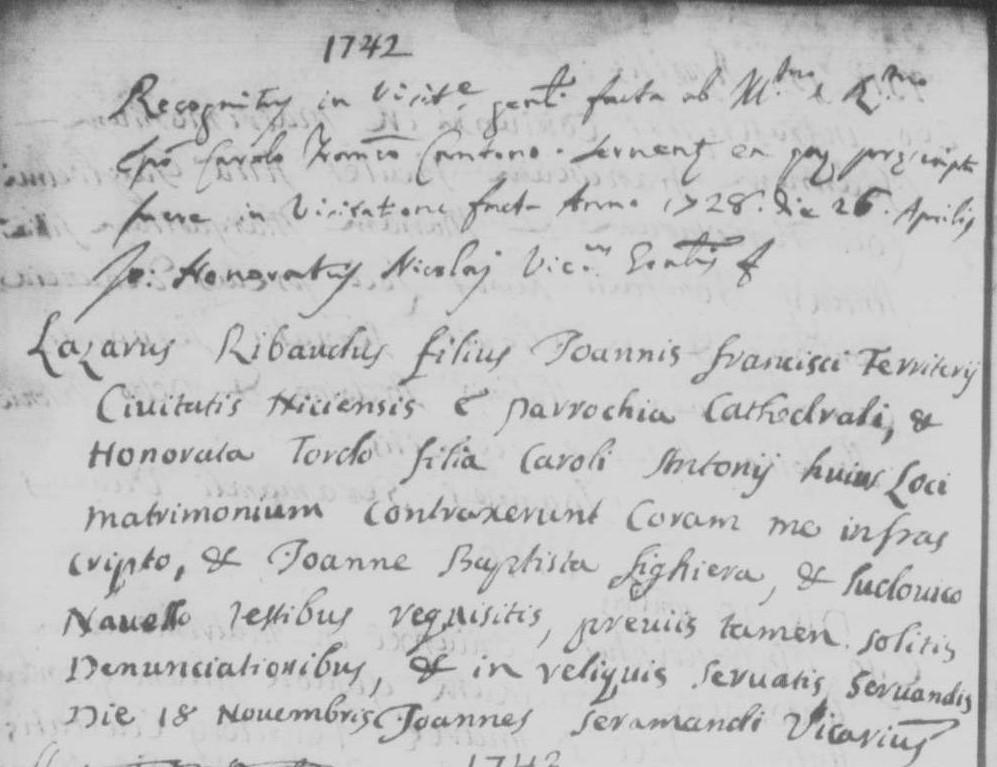 1742
Recognitus in Visite genli facta ab Mmo & Rmo
Epo Carolo Franco Cantono. Servent
fuere in Visitatione facta Anno 1728. die 26. Aprilis
Jo: Honoratus Nicolaj Vic.us Gnalis
Lazarus Ribaudus filius Joannis francisci Territorij
Civitatis Niciensis e parrochia Cathedrali, &
Honorata Tordo filia Caroli Antonij huius Loci
matrimonium contraxerunt Coram me infras
cripto, & Joanne Baptista fighiera, & Ludovico
Navello testibus requisitis, previis tamen solitis
Denunciationibus, & in reliquis servatis servandis
Die 18 Novembris Joannes Seramandi Vicarius
1742